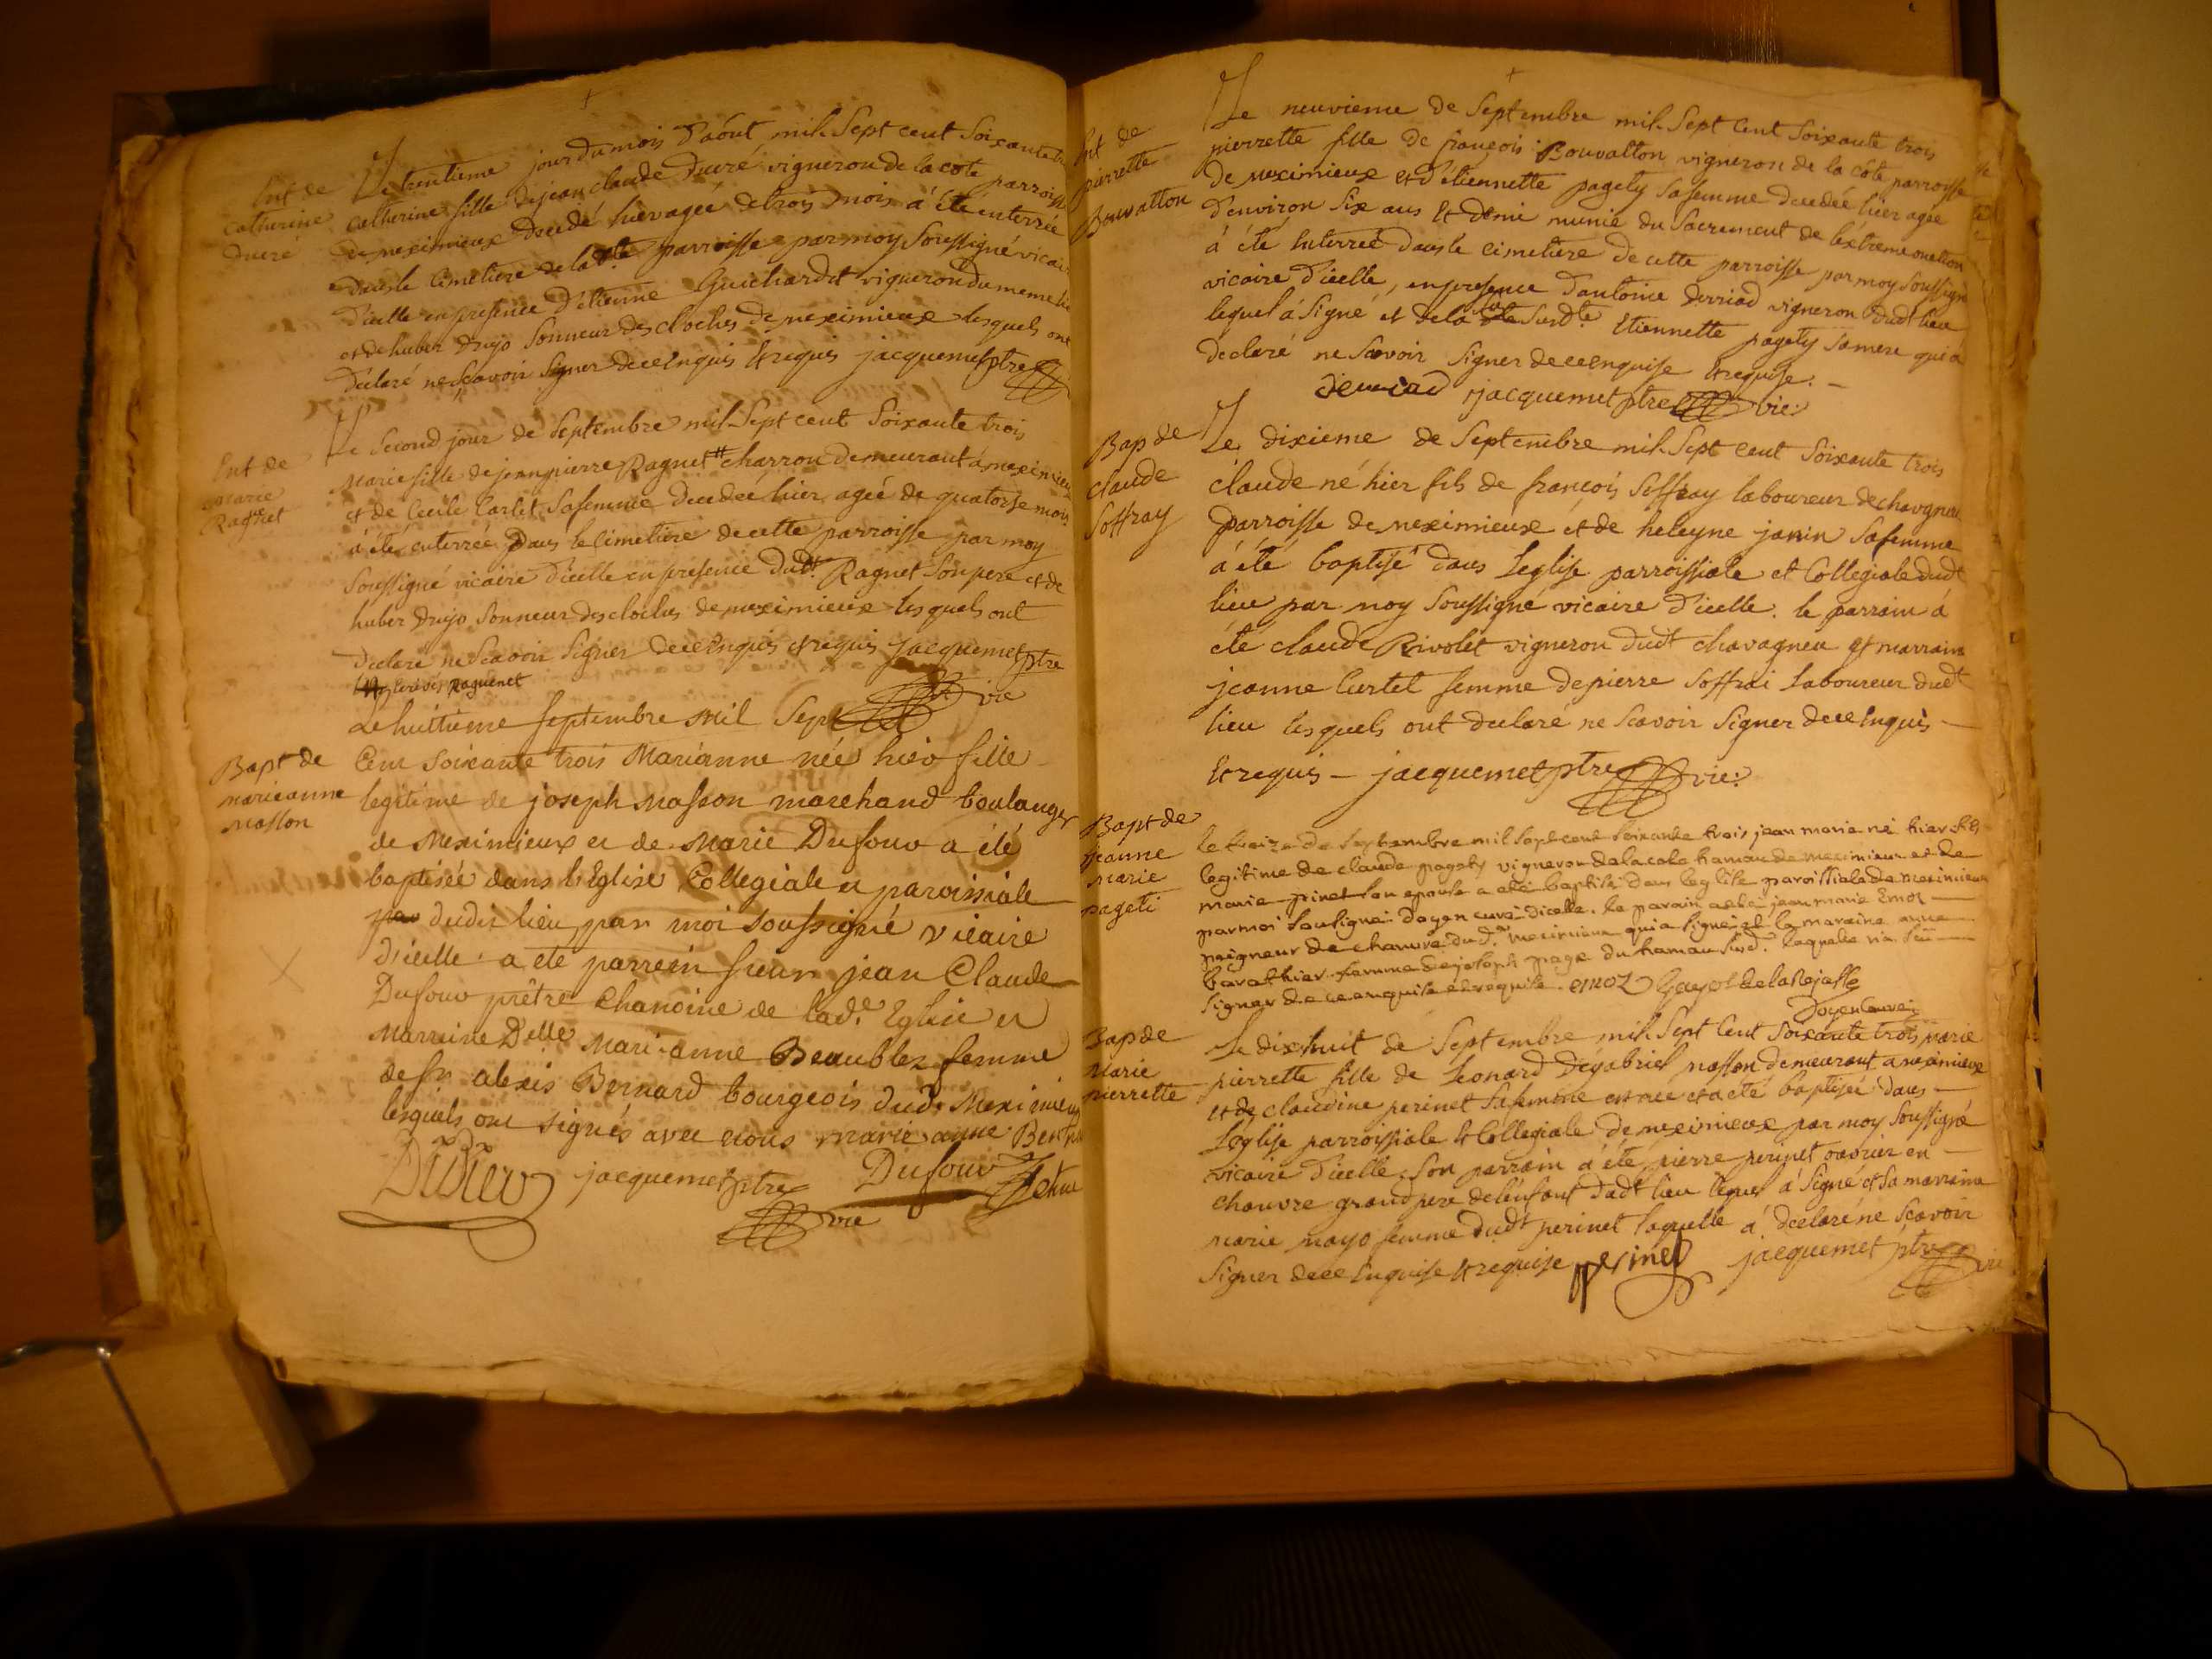 Ent de
catherine
ducré
Le trentieme jour du mois d'août mil Sept cent Soixante
catherine fille de jean claude ducré vigneron de la cote parroisse
de meximieux decedé hier agée de trois mois à été enterrée
dans le Cimetiere de la dte parroisse par moy Soussigné vicaire
d'icelle en presence d'etienne Guichardet vigneron du meme lieu
et de huber Drujo Sonneur des cloches de meximieux lesquels ont
declaré ne Scavoir Signer de ce Enquis et requis jacquemet ptre
Ent de
Marie
Ragnet
Le Second jour de Septembre mil Sept cent Soixante trois
Marie fille de jean pierre Ragnet # charron demeurant à meximieux
et de Cecile Carlet Sa femme decedée hier agée de quatorse mois
à été enterrée Dans le Cimetiere de cette parroisse par moy
Soussigné vicaire d'icelle en presence dudt Ragnet Son pere et de
huber Drujo Sonneur des cloches de meximieux lesquels ont
declaré ne Scavoir Signer de ce Enquis et requis jacquemet ptre
vic
Bapt de
marieanne
Masson
Le huitieme Septembre Mil Sept
Cent Soixante trois Marianne née hier fille
legitime de joseph Masson marchand boulanger
de Meximieux et de Marie Dufour a été
baptisée dans l'Eglise Collegiale et paroissiale
dudit lieu par moi soussigné vicaire
d'icelle a ete parrein sieur jean Claude
Dufour prêtre Chanoine de lad.e Eglise et
Marreine Delle Mari-anne Beaublez femme
de sr alexis Bernard bourgeois dud. Meximieux
lesquels ont signés avec nous marie anne
Didier jacquemet ptre Dufour
vic
Ent de
pierrette
Bouvatton
Le neuvieme de Septembre mil Sept Cent Soixante trois
pierrette fille de françois Bouvatton vigneron de la côte parroisse
de Meximieux et d'etiennette pagety Sa femme decedée hier agée
d'environ Six ans et demi munie du Sacrement de l'extreme onction
à été Enterrée dans le Cimetiere de cette parroisse par moy Soussigné
vicaire d'icelle, en presence d'antoine derriad vigneron dudt lieu
lequel à Signé et de la Susd.te Etiennette pagety Sa mere qui à
declaré ne Scavoir Signer de ce enquise et requise. –
derriad jacquemet ptre vic.
Bap de
claude
Soffray
Le dixieme de Septembre mil Sept cent Soixante trois
claude né hier fils de françois Soffray laboureur de chavagneu
parroisse de meximieux et de heleyne janin Sa femme
à été baptisé dans l'eglise parroissiale et Collegiale dudt
lieu par moy Soussigné vicaire d'icelle. le parrain à
été claude Rivolet vigneron dudt chavagneu et marraine
jeanne Curtet femme de pierre Soffrai Laboureur dudt
lieu lesquels ont declaré ne Scavoir Signer de ce Enquis –
et requis – jacquemet ptre vic.
Bapt de
jeanne
marie
pageti
le treize de septembre mil sept cent soixante trois jean marie né hier fils
legitime de claude pagety vigneron de la cote hamau de meximieux et de
marie pinet son epouse a été baptisé dans leglise paroissiale de meximieux
par moi soussigné doyen curé dicelle. le parain a été jean marie Emoz –
peigneur de chanvre dud. meximieux qui a signé et la maraine anne
barathier femme de joseph page du hamau susd. laquelle n'a scu
signer de ce enquise et requise. emoz Gayot de la Rejasse
doyen curé
Bap de
Marie
pierrette
Le dixhuit de Septembre mil Sept Cent Soixante trois marie
pierrette fille de Leonard Degabriel masson demeurant a meximieux
et de claudine perinet Sa femme est née et a été baptisée dans –
L'église parroissiale et Collegiale de meximieux par moy Soussigné
vicaire d'icelle. Son parrain à été pierre perinet ouvrier en –
chanvre grand pere de l'enfant dudt lieu lequel à Signé et Sa marraine
marie mayo femme dudt perinet laquelle à declaré ne Scavoir
Signer de ce Enquise et requise perinet jacquemet ptre
vic